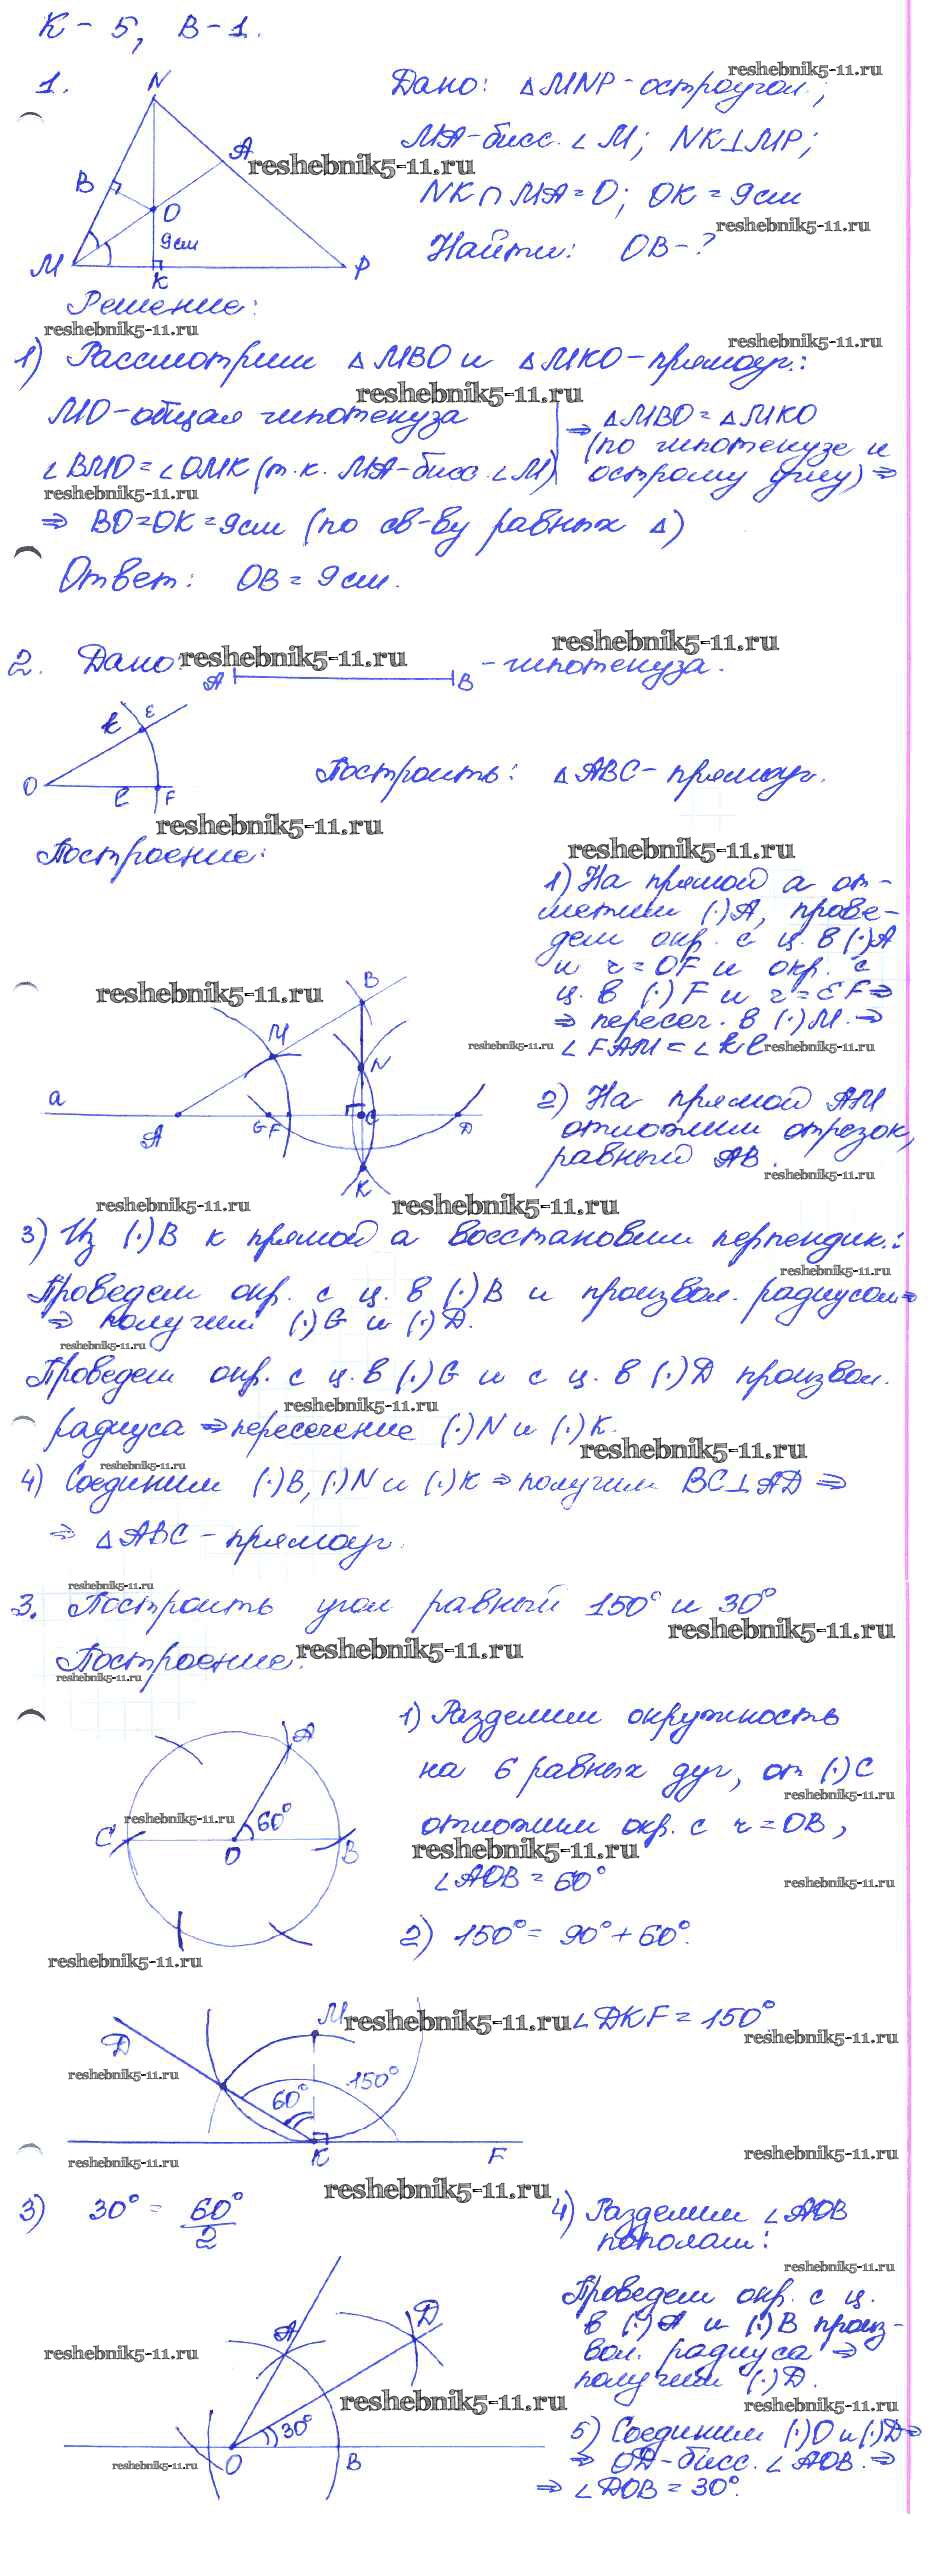 К-5, В-1.
1.
N
A
B
O
9см
M
K
P
Дано: △MNP-остроугол.;
MA-бисс. ∠M; NK⊥MP;
NK∩MA=O; OK=9см
Найти: OB-?
Решение:
1) Рассмотрим △MBO и △MKO-прямоуг.:
MO-общая гипотенуза
∠BMO=∠OMK (т.к. MA-бисс. ∠M)
⇒ △MBO=△MKO
(по гипотенузе и
острому углу) ⇒
⇒ BO=OK=9см (по св-ву равных △)
Ответ: OB=9см.
2. Дано:
A B - гипотенуза.
k E
O
l F
Построить: △ABC-прямоуг.
Построение:
1) На прямой a от-
метим (·)A, прове-
дем окр. с ц. в (·)A
и r=OF и окр. с
ц. в (·)F и r=EF⇒
⇒ пересеч. в (·)M.⇒
∠FAM=∠kl
B
M
N
a
A
G F
C
D
K
2) На прямой AM
отложим отрезок,
равный AB.
3) Из (·)B к прямой a восстановим перпендик.:
Проведем окр. с ц. в (·)B и произвол. радиусом⇒
⇒ получим (·)G и (·)D.
Проведем окр. с ц. в (·)G и с ц. в (·)D произвол.
радиуса ⇒пересечение (·)N и (·)K.
4) Соединим (·)B, (·)N и (·)K ⇒ получим BC⊥AD ⇒
⇒ △ABC - прямоуг.
3. Построить угол равный 150° и 30°
Построение:
A
60°
C
O
B
1) Разделим окружность
на 6 равных дуг, от (·)C
отложим окр. с r=OB,
∠AOB=60°
2) 150°=90°+60°.
M
D
60°
150°
K
F
∠DKF=150°
3) 30°=60°/2
4) Разделим ∠AOB
пополам:
Проведем окр. с ц.
в (·)A и (·)B произ-
вол. радиуса ⇒
получим (·)D.
A
D
30°
O
B
5) Соединим (·)O и (·)D⇒
⇒ OD-бисс. ∠AOB.⇒
⇒ ∠DOB=30°.
reshebnik5-11.ru